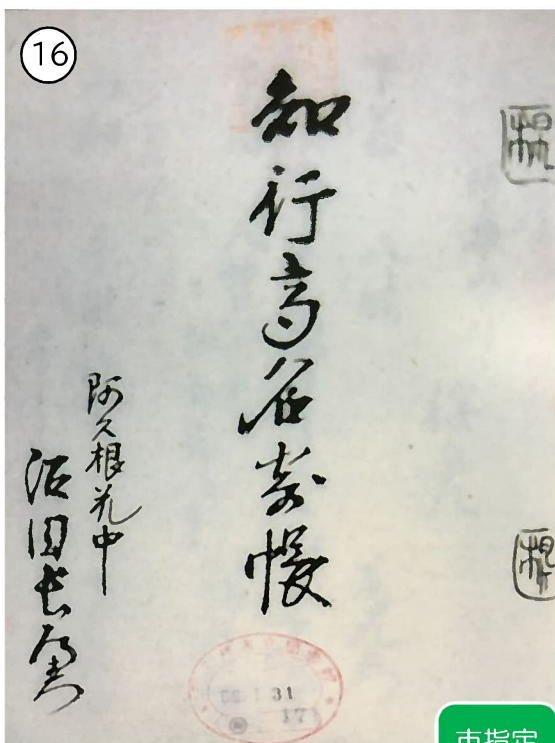 16
知行高名寄帳
阿久根衆中
31
市指定